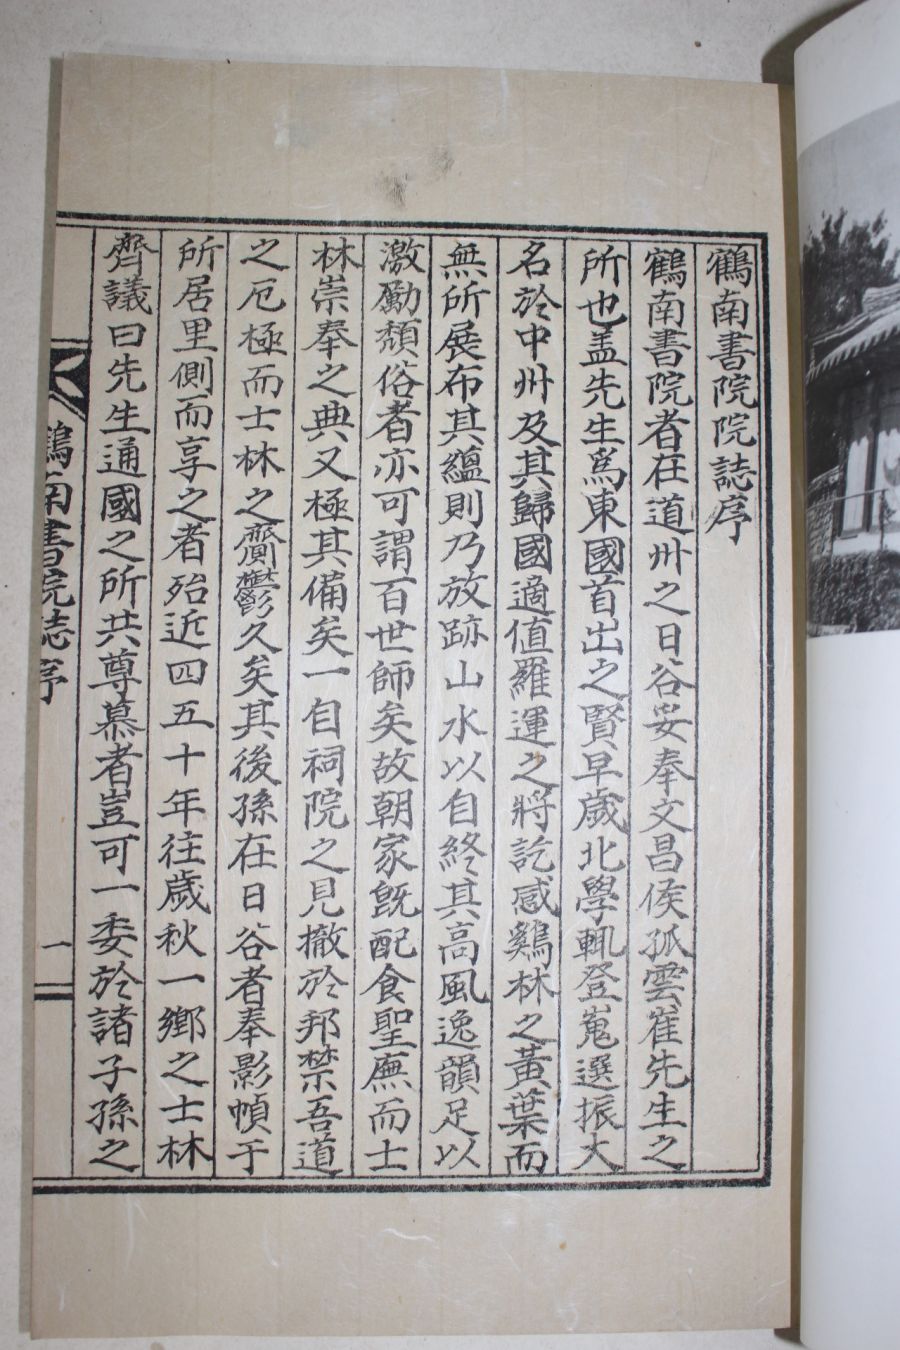 鶴南書院院誌序
鶴南書院者在道州之日谷妥奉文昌侯孤雲崔先生之
所也盖先生爲東國首出之賢早歲北學輒登嵬選振大
名於中州及其歸國適値羅運之將訖感鷄林之黃葉而
無所展布其蘊則乃放跡山水以自終其高風逸韻足以
激勵頹俗者亦可謂百世師矣故朝家旣配食聖廡而士
林崇奉之典又極其備矣一自祠院之見撤於邦禁吾道
之厄極而士林之齎鬱久矣其後孫在日谷者奉影幀于
所居里側而享之者殆近四五十年往歲秋一鄕之士林
齊議曰先生通國之所共尊慕者豈可一委於諸子孫之
鶴南書院誌序
一